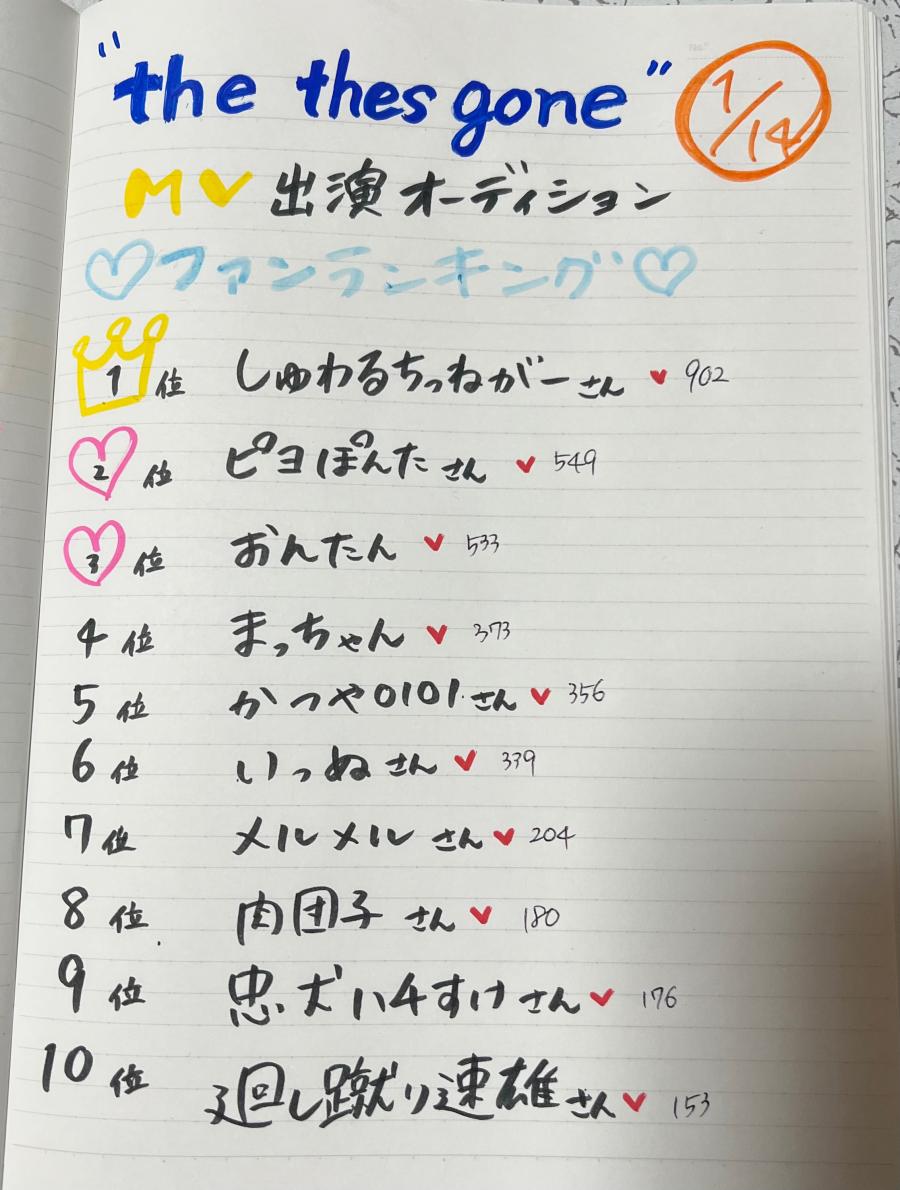 "the thes gone" 1/14
MV 出演オーディション
♡ファンランキング♡
1位 しゅわるちっねがーさん ♥ 902
2位 ピヨぽんたさん ♥ 549
3位 おんたん ♥ 533
4位 まっちゃん ♥ 373
5位 かつや0101.さん ♥ 356
6位 いっぬさん ♥ 339
7位 メルメルさん ♥ 204
8位 肉団子さん ♥ 180
9位 忠犬ハチすけさん ♥ 176
10位 廻し蹴り速雄さん ♥ 153